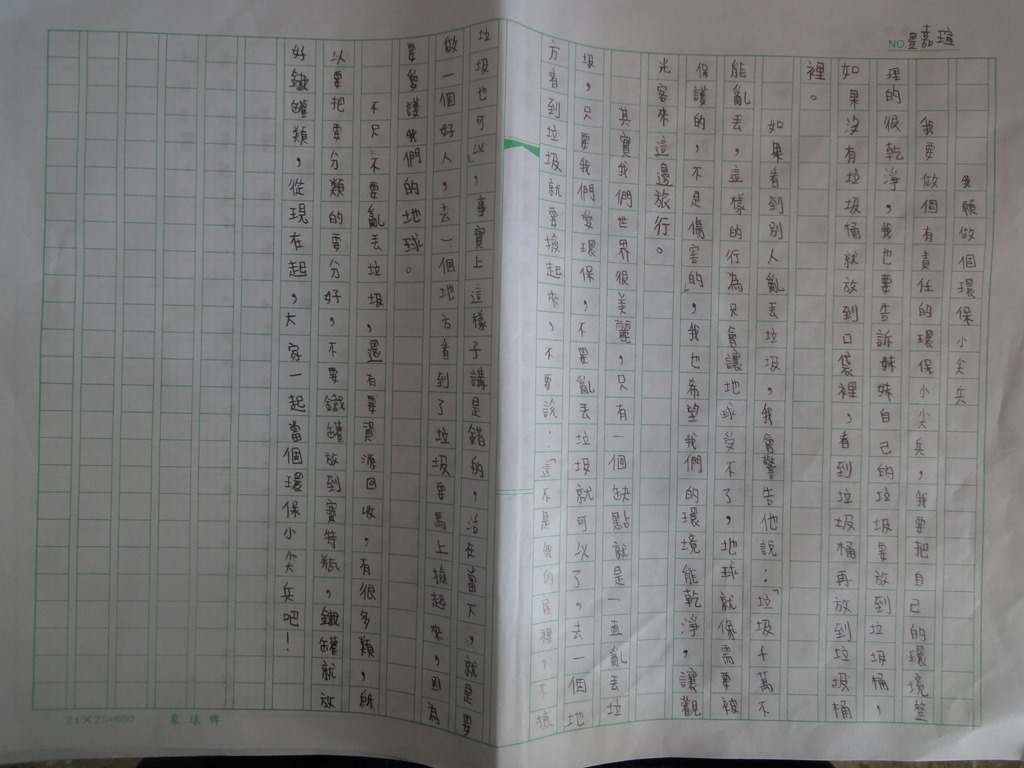 NO.
嘉瑄
我願做個環保小尖兵
我要做個有責任的環保小尖兵，我要把自己的環境整
理的很乾淨，我也要告訴妹妹自己的垃圾要放到垃圾桶，
如果沒有垃圾桶就放到口袋裡，看到垃圾桶再放到垃圾桶
裡。
如果看到別人亂丟垃圾，我會警告他說：「垃圾千萬不
能亂丟，這樣的行為只會讓地球受不了，地球就像需要被
保護的，不是傷害的」，我也希望我們的環境能乾淨，讓觀
光客來這邊旅行。
其實我們世界很美麗，只有一個缺點就是一直亂丟垃
圾，只要我們愛環保，不要亂丟垃圾就可以了。去一個地
方看到垃圾就要撿起來，不要說：「這不是我的房裡，不撿
垃圾也可以」，事實上這樣子講是錯的，活在當下，就是要
做一個好人，去一個地方看到了垃圾要馬上撿起來，因為
要愛護我們的地球。
不只不要亂丟垃圾，還有要資源回收，有很多類，所
以要把要分類的要分好，不要鐵罐放到寶特瓶，鐵罐就放
好鐵罐類，從現在起，大家一起當個環保小尖兵吧！
24×25=600
象球牌